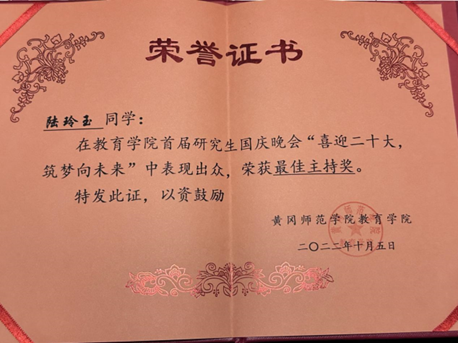 荣誉证书
陆玲玉 同学：
在教育学院首届研究生国庆晚会“喜迎二十大，
筑梦向未来”中表现出众，荣获最佳主持奖。
特发此证，以资鼓励
黄冈师范学院教育学院
二〇二二年十月五日